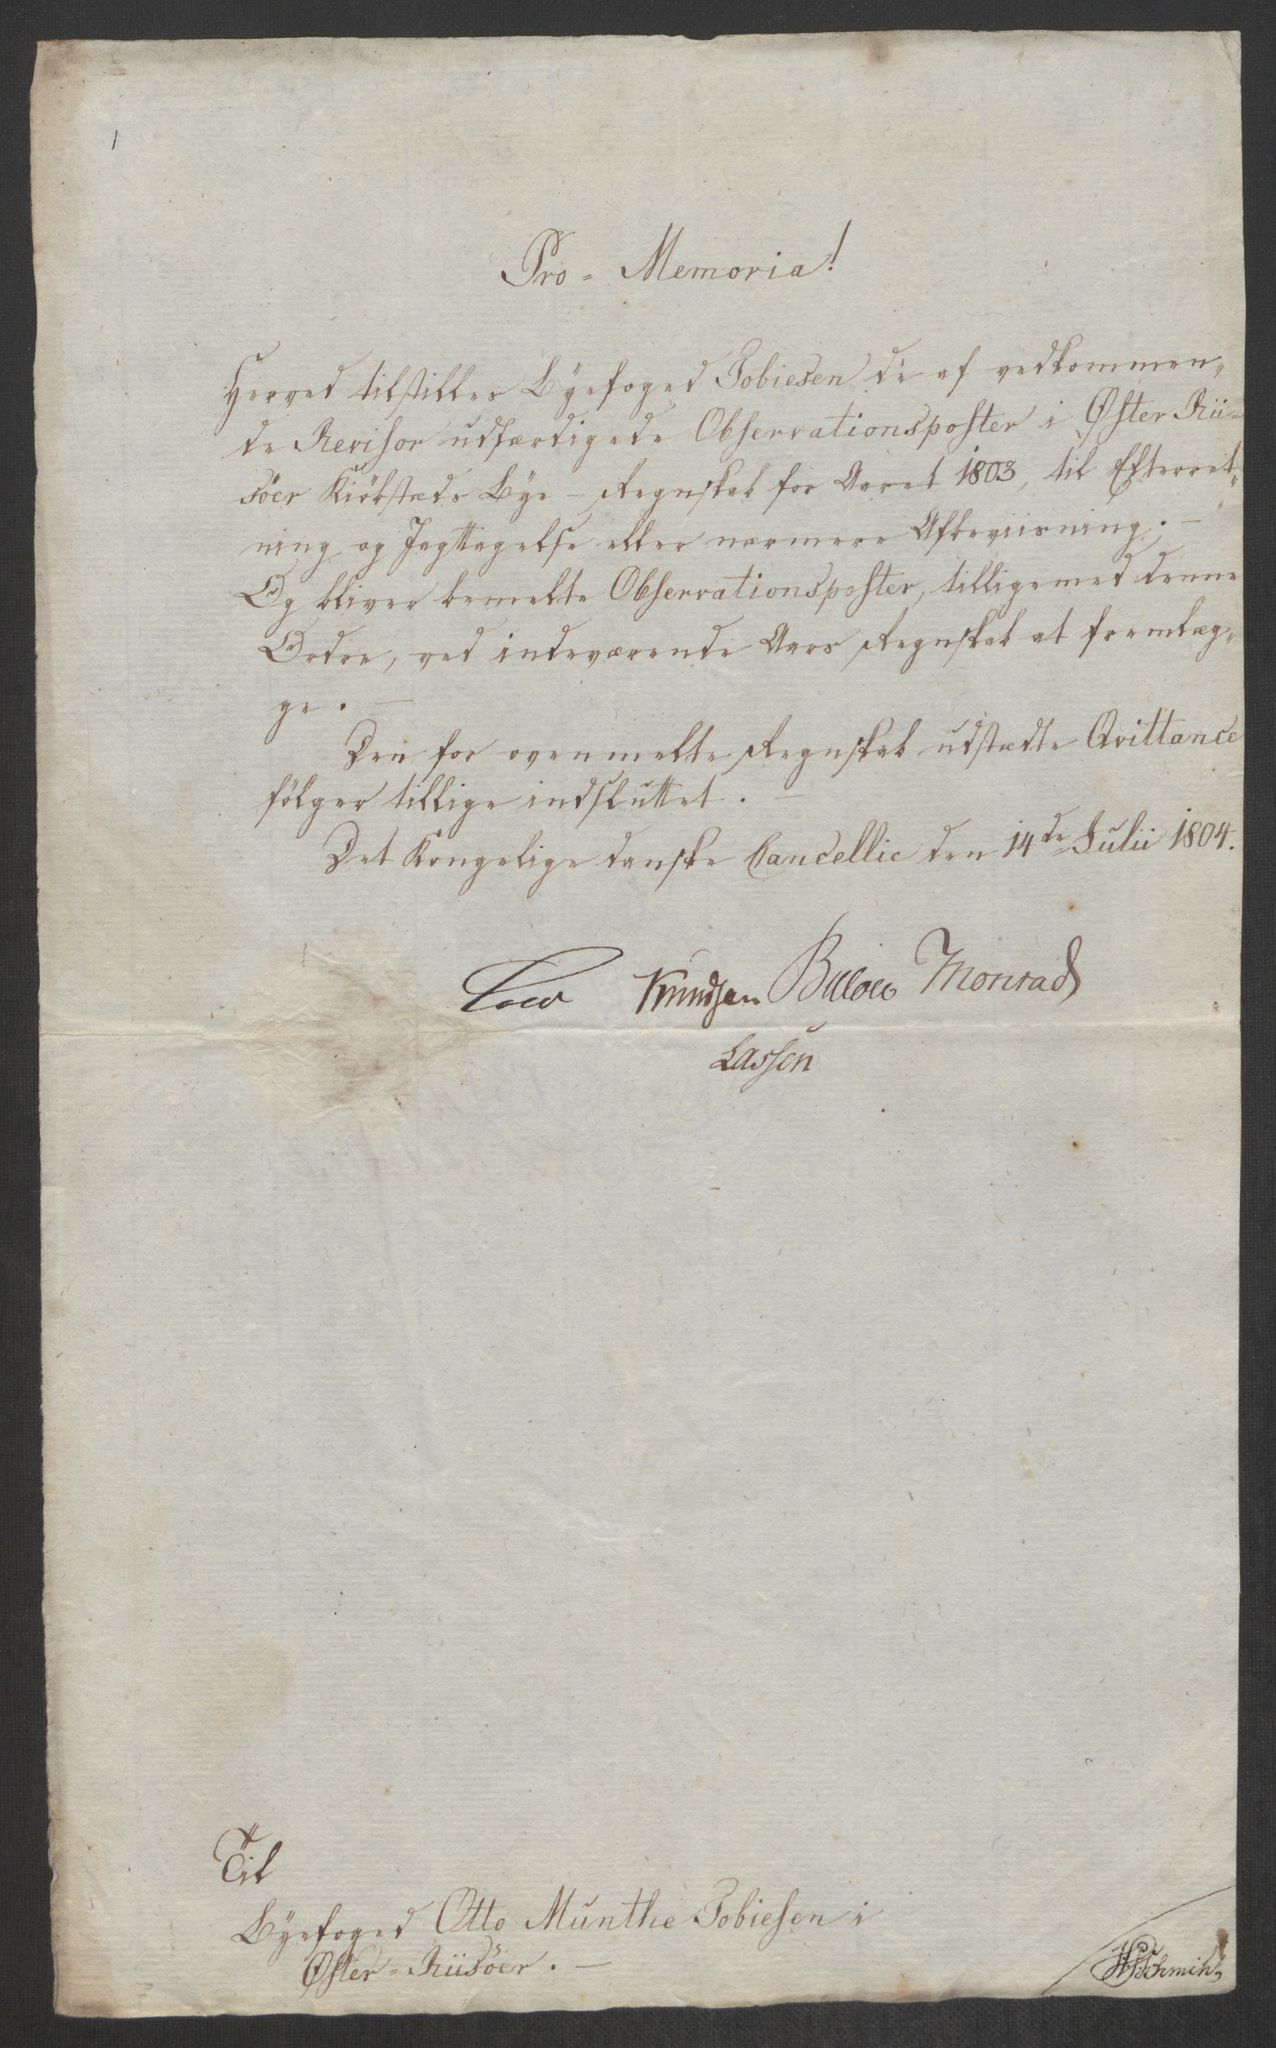 1
Pro = Memoria!
Herved tilstilles Byefoged Tobiesen de af vedkommen„
de Revisor udfærdigede Observationsposter i Øster Rii=
söer Kiöbstæds Bye – Regnskab for Aaret 1803, til Efterret„
ning og Iagttagelse eller nærmere Afbeviisning. –
Og bliver bemelte Observationsposter, tilligemed denne
Ordre, ved indeværende Aars Regnskab at fremlæg„
ge. –
Den for ovenmelte Regnskab udstædte Qvittance
fölger tillige indsluttet. –
Det Kongelige danske Cancellie den 14de Julii 1804.
Knudsen Bülow Monrad
Lassen
Til
Byefoged Otto Munthe Tobiesen i
Øster = Riisöer. –
Schmidt